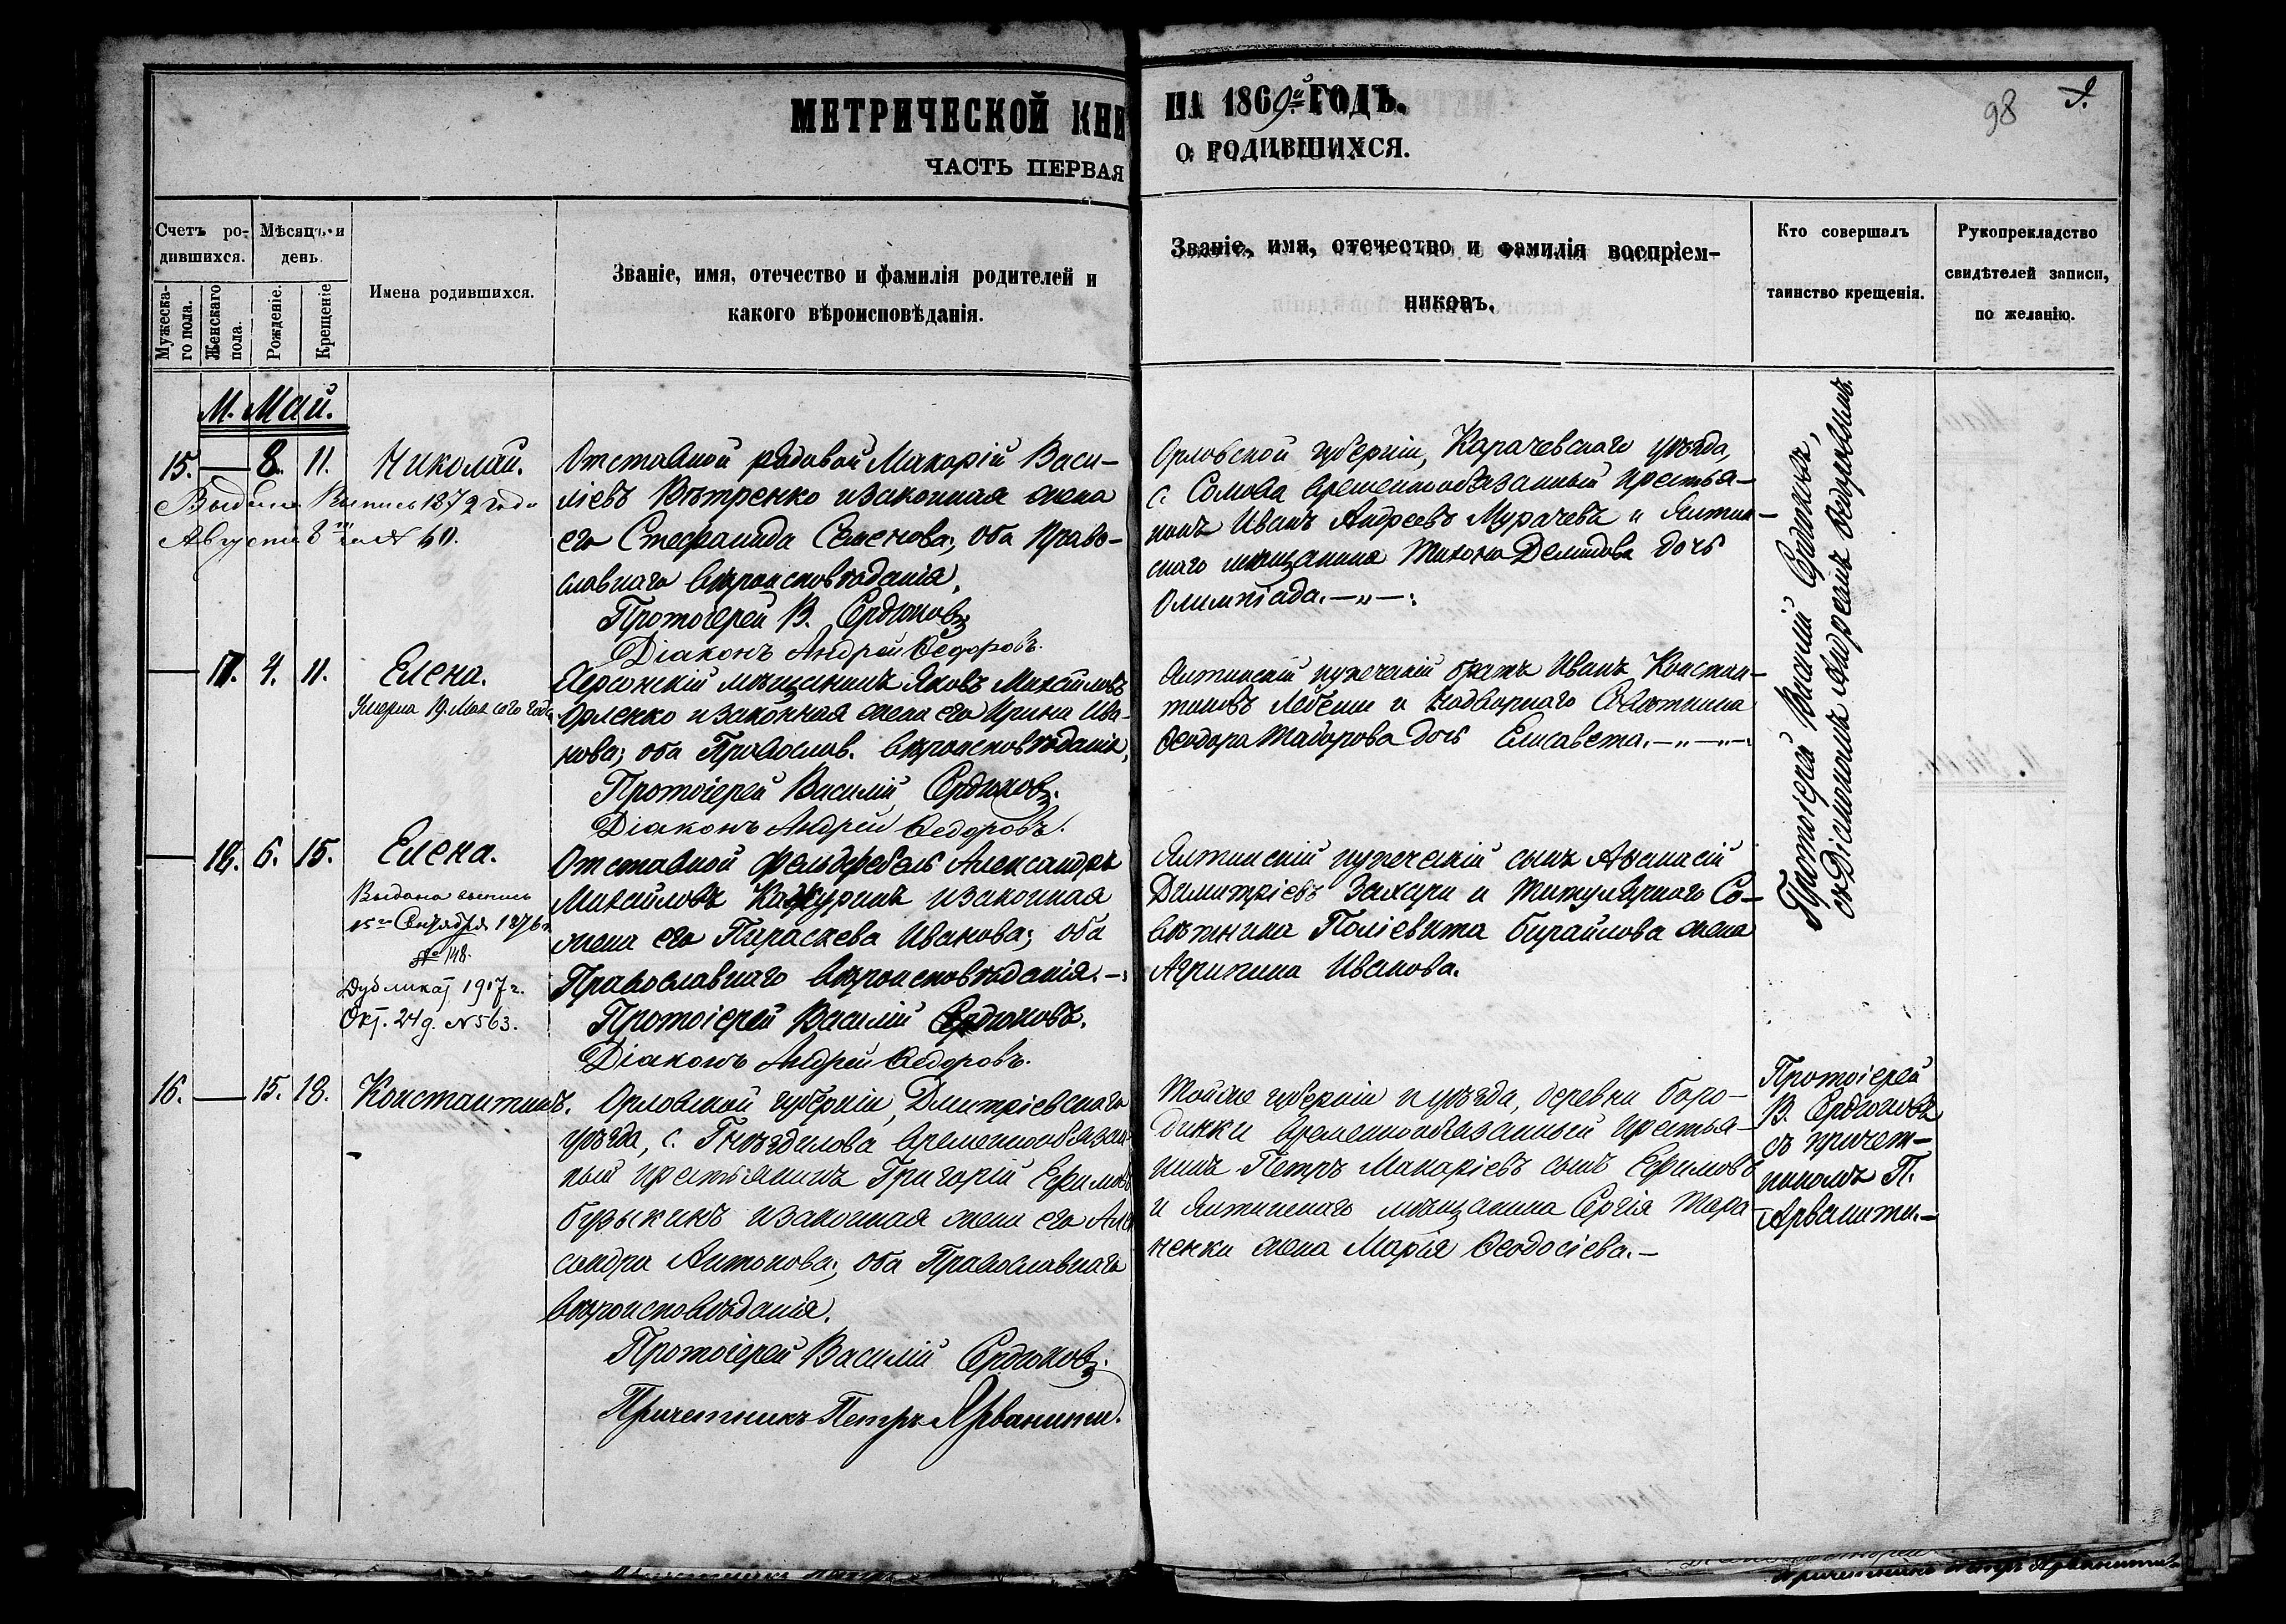 МЕТРИЧЕСКОЙ КНИ
ЧАСТЬ ПЕРВАЯ
НА 1869й ГОДЪ.
О РОДИВШИХСЯ.
98
9.
Счетъ ро-
дившихся.
Мѣсяцъ и
день.
Мужеска-
го пола.
Женскаго
пола.
Рожденіе.
Крещеніе
Имена родившихся.
Званіе, имя, отечество и фамилія родителей и
какого вѣроисповѣданія.
Званіе, имя, отечество и фамилія воспріем-
никовъ.
Кто совершалъ
таинство крещенія.
Рукоприкладство
свидѣтелей записи,
по желанію.
М. Май.
15. — 8. 11. Николай.
Выдана Выпись 1872 года
Августа 8го № 60.
Отставной рядовой Макарій Васи-
ліевъ Вѣтренко и законная жена
его Стефанида Семенова; оба Право-
славнаго вѣроисповѣданія.
Протоіерей В. Сердюковъ
Діаконъ Андрей Ѳедоровъ.
Орловской губерніи, Карачевскаго уѣзда,
с. Сомова временнообязанный крестья-
нинъ Иванъ Андреевъ Мурачевъ и Ялтин-
скаго мѣщанина Тихона Демидова дочь
Олимпіада.—"—:
Протоіерей Василій Сердюковъ,
съ Діакономъ Андреемъ Ѳедоровымъ.
— 17. 4. 11. Елена.
Умерла 19. Мая сего года
Херсонскій мѣщанинъ Яковъ Михайловъ
Орленко и законная жена его Ирина Ива-
нова; оба Православ. вѣроисповѣданія.
Протоіерей Василій Сердюковъ.
Діаконъ Андрей Ѳедоровъ.
Ялтинскій купеческій братъ Иванъ Констан-
тиновъ Лебеши и Надворнаго Совѣтника
Ѳеодора Тайорова дочь Елисавета.—"—"—:
— 18. 6. 15. Елена.
Выдана выпись
15го Сентября 1876 г.
№ 148.
Дубликат 1917 г.
Окт. 24 д. № 563.
Отставной фельдфебель Александръ
Михайловъ Кажуринъ и законная
жена его Параскева Иванова; оба
Православнаго вѣроисповѣданія.—:
Протоіерей Василій Сердюковъ.
Діаконъ Андрей Ѳедоровъ.
Ялтинскій купеческій сынъ Аѳанасій
Димитріевъ Захари и Титулярнаго Со-
вѣтника Поліевкта Бурайлова жена
Агрипина Иванова.
16. — 15. 18. Константинъ.
Орловской губерніи, Дмитріевскаго
уѣзда, с. Гнѣздилова временнообязан-
ный крестьянинъ Григорій Ефимовъ
Бузыкинъ и законная жена его Алек
сандра Антонова; оба Православнаго
вѣроисповѣданія.
Протоіерей Василій Сердюковъ.
Причетникъ Петръ Арванити.
Тойже губерніи и уѣзда, деревни Боро-
динки временнообязанный крестья-
нинъ Петръ Макаріевъ сынъ Ефимовъ
и Ялтинскаго мѣщанина Сергія Тара-
ненки жена Марія Ѳеодосіева.—
Протоіерей
В. Сердюковъ
съ причет-
никомъ П.
Арванити.—
Причетникъ Петръ Арванити